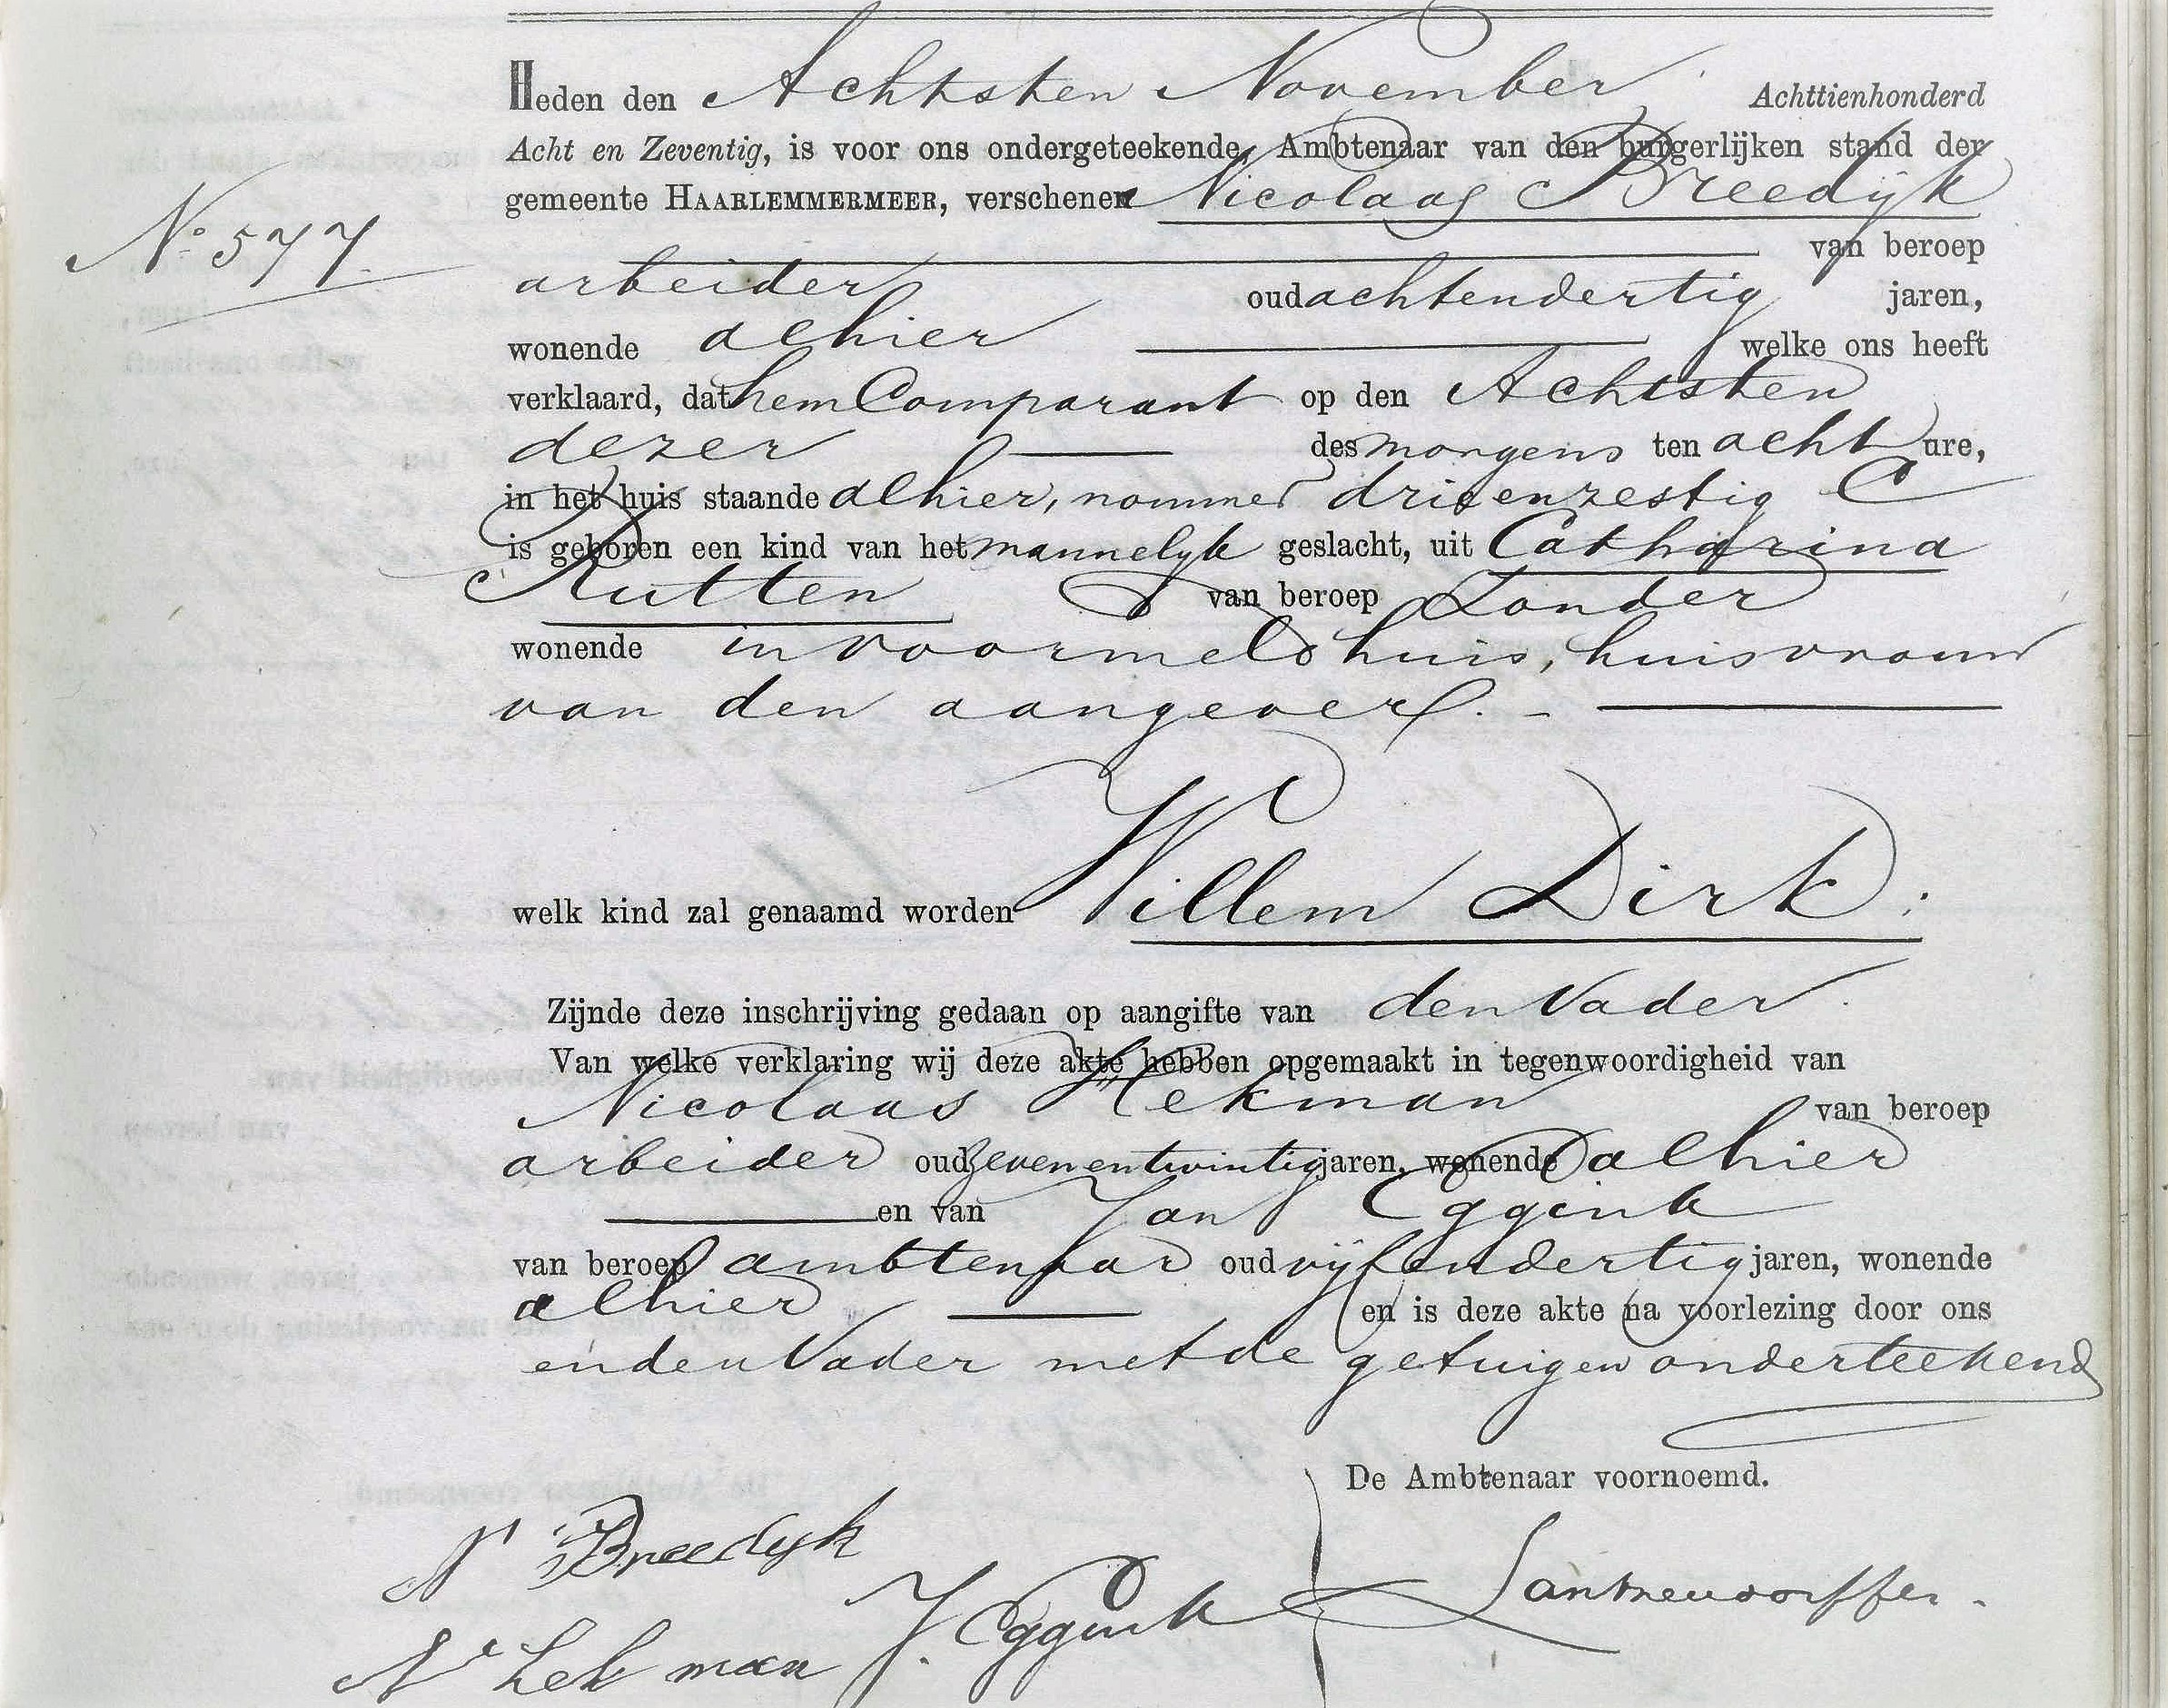 Heden den Achtsten November Achttienhonderd
Acht en Zeventig, is voor ons ondergeteekende, Ambtenaar van den burgerlijken stand der
gemeente HAARLEMMERMEER, verschenen Nicolaas Breedijk
No 577
van beroep
arbeider oud achtendertig jaren,
wonende alhier welke ons heeft
verklaard, dat hem Comparant op den Achtsten
dezer des morgens ten acht ure,
in het huis staande alhier, nommer drieenzestig C
is geboren een kind van het mannelyk geslacht, uit Catharina
Rutten van beroep Zonder
wonende in voormeld huis, huisvrouw
van den aangever. -
welk kind zal genaamd worden Willem Dirk.
Zijnde deze inschrijving gedaan op aangifte van den Vader
Van welke verklaring wij deze akte hebben opgemaakt in tegenwoordigheid van
Nicolaas Hekman van beroep
arbeider oud Zevenentwintig jaren, wonende alhier
en van Jan Eggink
van beroep ambtenaar oud vijfendertig jaren, wonende
alhier en is deze akte na voorlezing door ons
en den Vader met de getuigen onderteekend
De Ambtenaar voornoemd.
N Breedyk
N Hekman J. Eggink